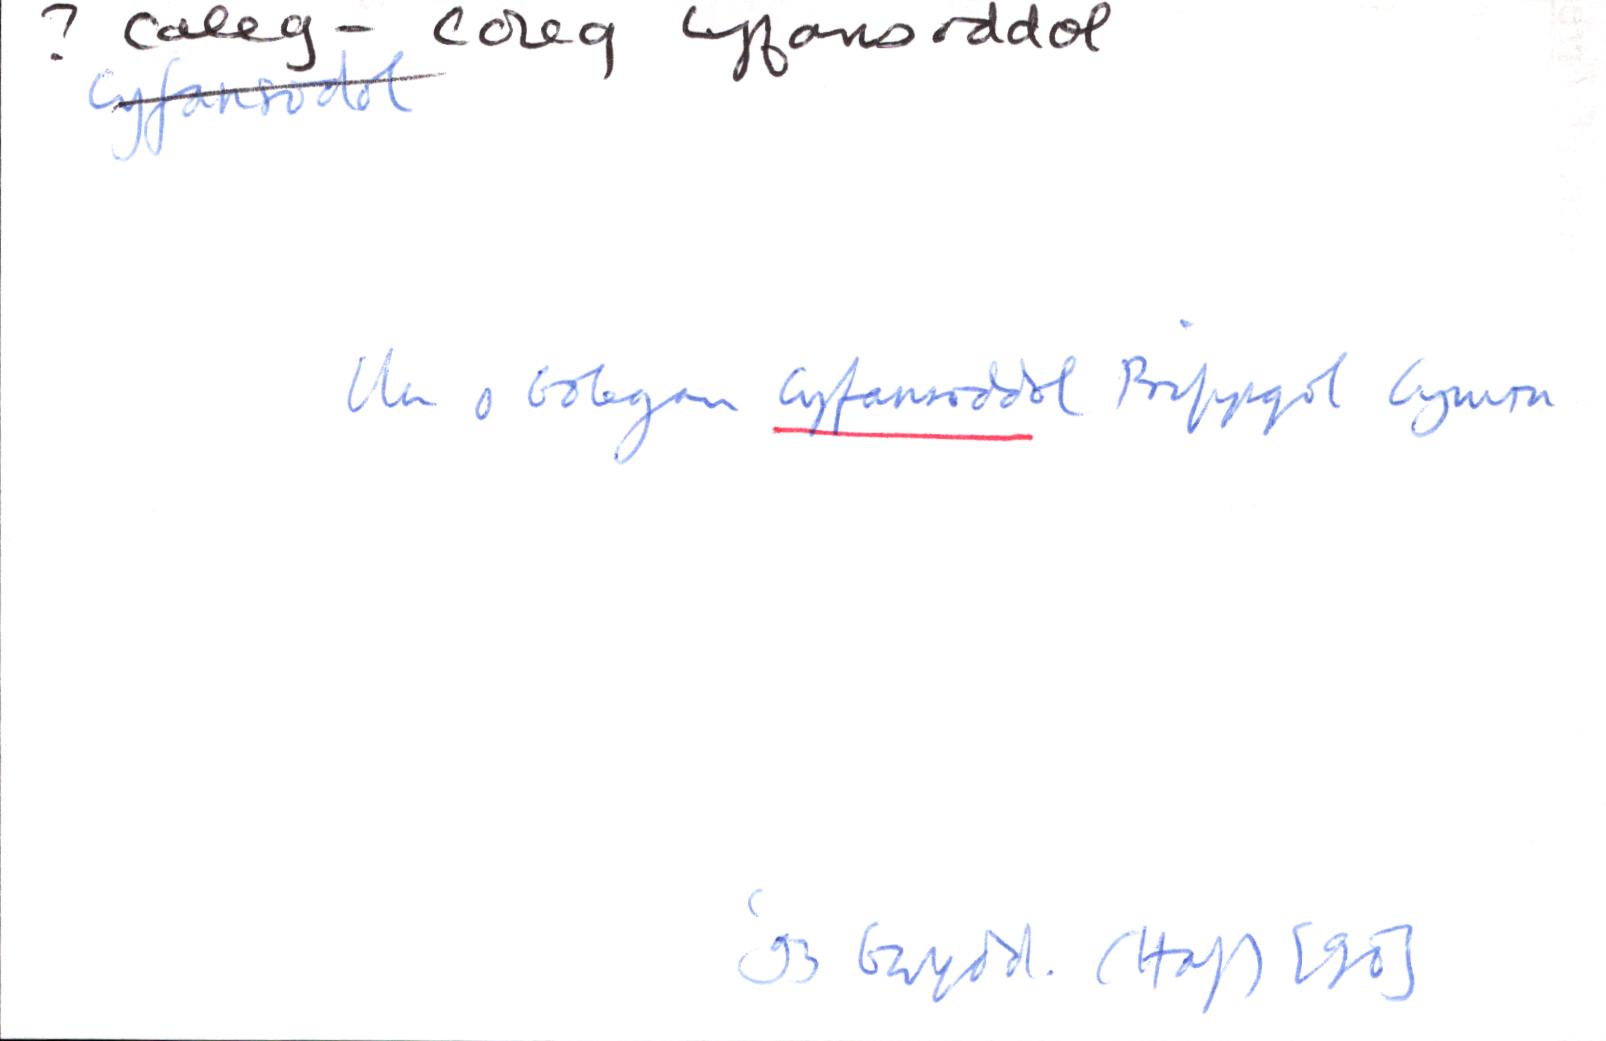 ? coleg - coleg cyfansoddol
Cyfansoddol
Un o Golegau Cyfansoddol Prifysgol Cymru
'93 Gwydd. (Haf) [90]